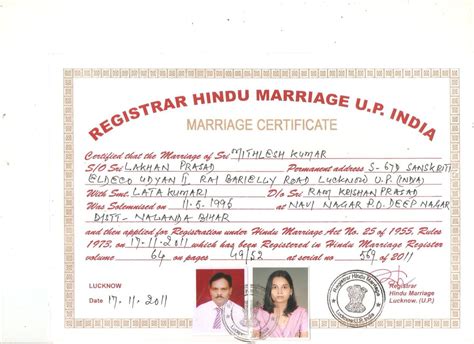 REGISTRAR HINDU MARRIAGE U.P. INDIA
MARRIAGE CERTIFICATE
Certified that the Marriage of Sri MITHLESH KUMAR
S/O Sri LAKHAN PRASAD Permanent address S-678 SANSKRITI
ELDECO UDYAN II, RAI BARIELLY ROAD LUCKNOW U.P. (INDIA)
With Smt. LATA KUMARI D/o Sri RAM KRISHAN PRASAD
Was Solemnised on 11-6-1996 at NAVI NAGAR P.O. DEEP NAGAR
DISTT- NALANDA BIHAR
and then applied for Registration under Hindu Marriage Act No. 25 of 1955, Rules
1973. on 17-11-2011 which has been Registered in Hindu Marriage Register
volume 64 on pages 49/52 at serial no 569 of 2011
LUCKNOW
Date 17-11-2011
Registrar
Hindu Marriage
Lucknow. (U.P.)
Registrar Hindu Marriage
Lucknow, U.P. India